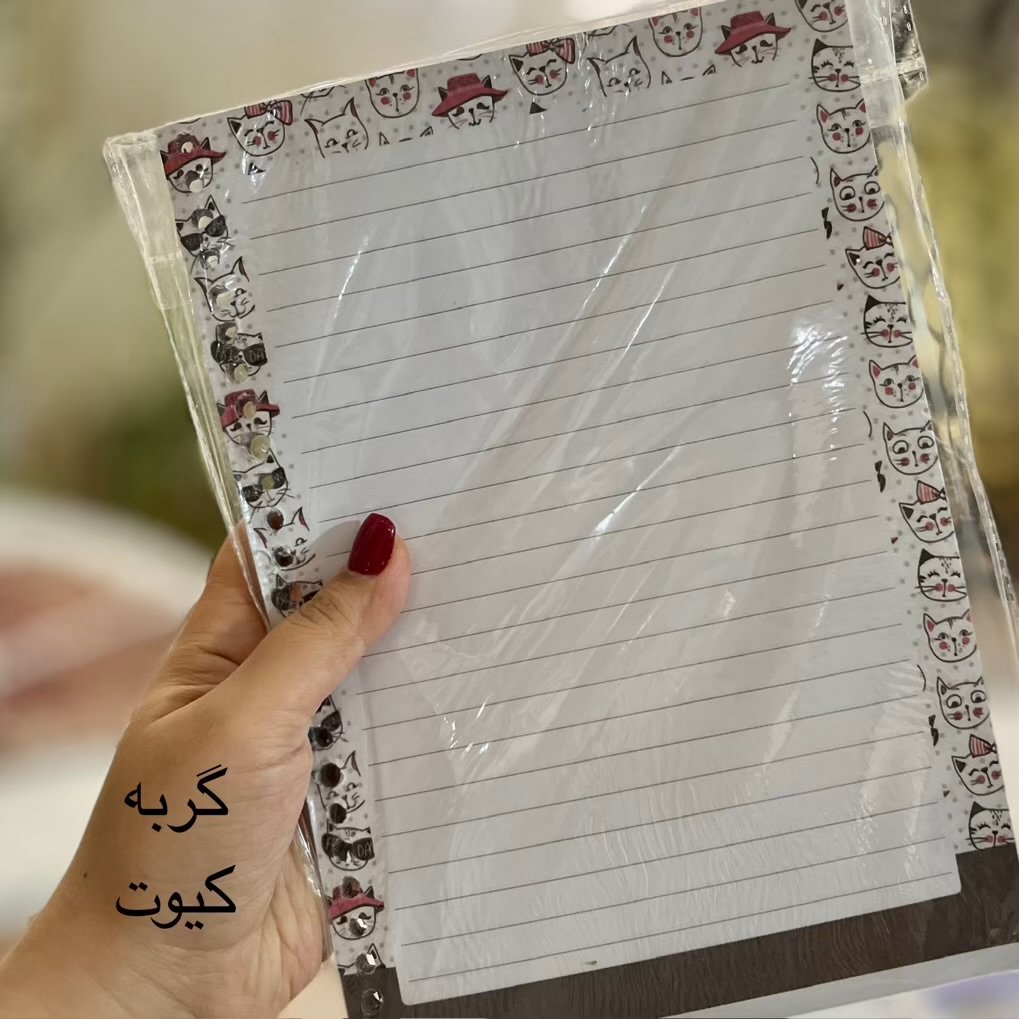 گربه
کیوت